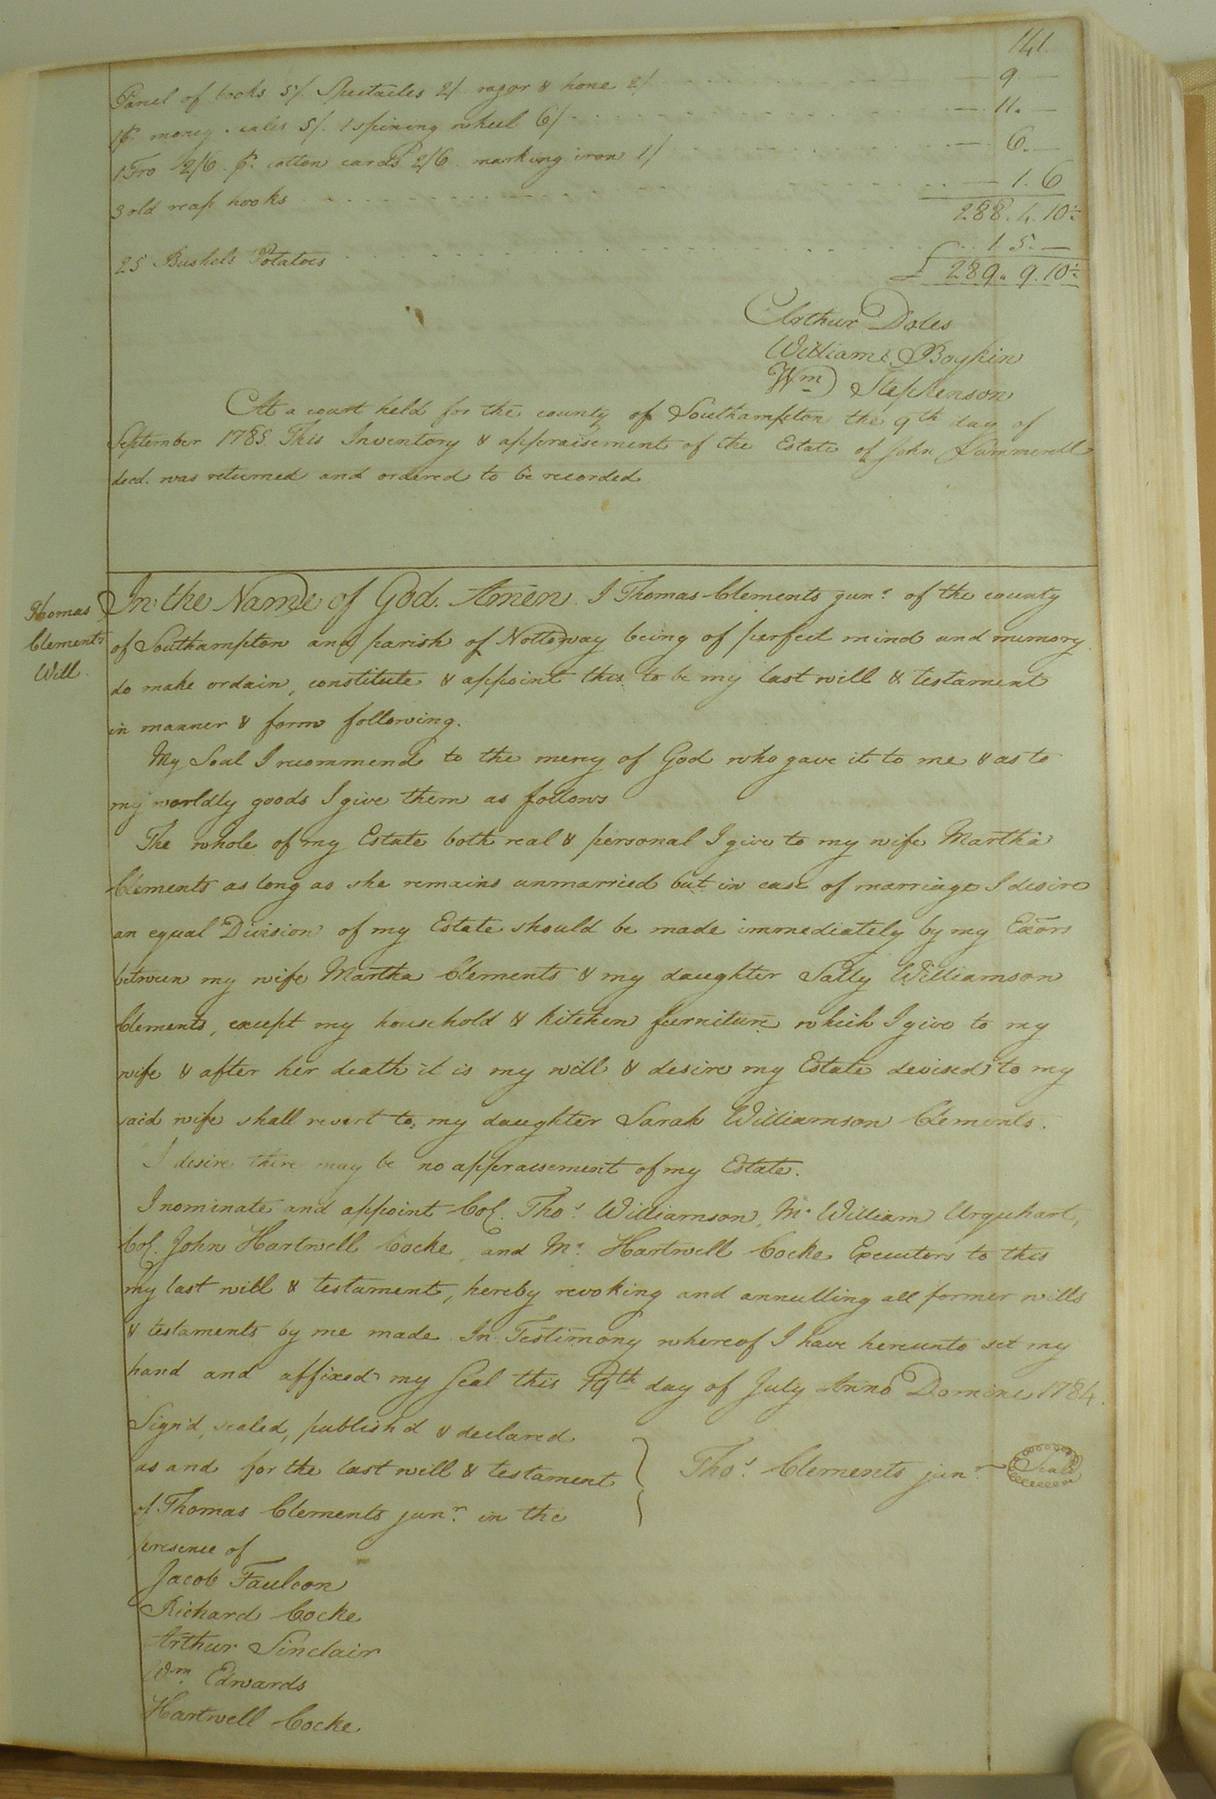 141
Parcel of books 5/. Spectacles 2/. razor & hone 2/ — 9. —
1 pr. money scales 5/. 1 spining wheel 6/ — 11. —
1 Fro 2/6. pr. cotton cards 2/6. marking iron 1/ — 6. —
3 old reap hooks — 1. 6
288. 4. 10½
25 Bushels Potatoes 1. 5. —
£ 289. 9. 10½
Arthur Doles
William Boykin
Wm Stephenson
At a court held for the county of Southampton the 9th day of
September 1785 This Inventory & appraisement of the Estate of John Summerell
decd. was returned and ordered to be recorded
Thomas
Clements
Will.
In the Name of God. Amen. I Thomas Clements junr. of the county
of Southampton and parish of Nottoway being of perfect mind and memory
do make ordain, constitute & appoint this to be my last will & testament
in manner & form following.
My Soul I recommend to the mercy of God who gave it to me & as to
my worldly goods I give them as follows
The whole of my Estate both real & personal I give to my wife Martha
Clements as long as she remains unmarried but in case of marriage I desire
an equal Division of my Estate should be made immediately by my Exors
between my wife Martha Clements & my daughter Sally Williamson
Clements, except my household & kitchen furniture which I give to my
wife & after her death it is my will & desire my Estate devised to my
said wife shall revert to my daughter Sarah Williamson Clements.
I desire there may be no appraisement of my Estate.
I nominate and appoint Col. Thos. Williamson, Mr. William Urquhart,
Col. John Hartwell Cocke, and Mr. Hartwell Cocke Executors to this
my last will & testament, hereby revoking and annulling all former wills
& testaments by me made. In Testimony whereof I have hereunto set my
hand and affixed my seal this 19th day of July Anno Domini 1784.
Sign'd, sealed, publish'd & declared
as and for the last will & testament
of Thomas Clements junr. in the
presence of
Thos. Clements junr. Seal
Jacob Faulcon
Richard Cocke
Arthur Sinclair
Wm. Edwards
Hartwell Cocke